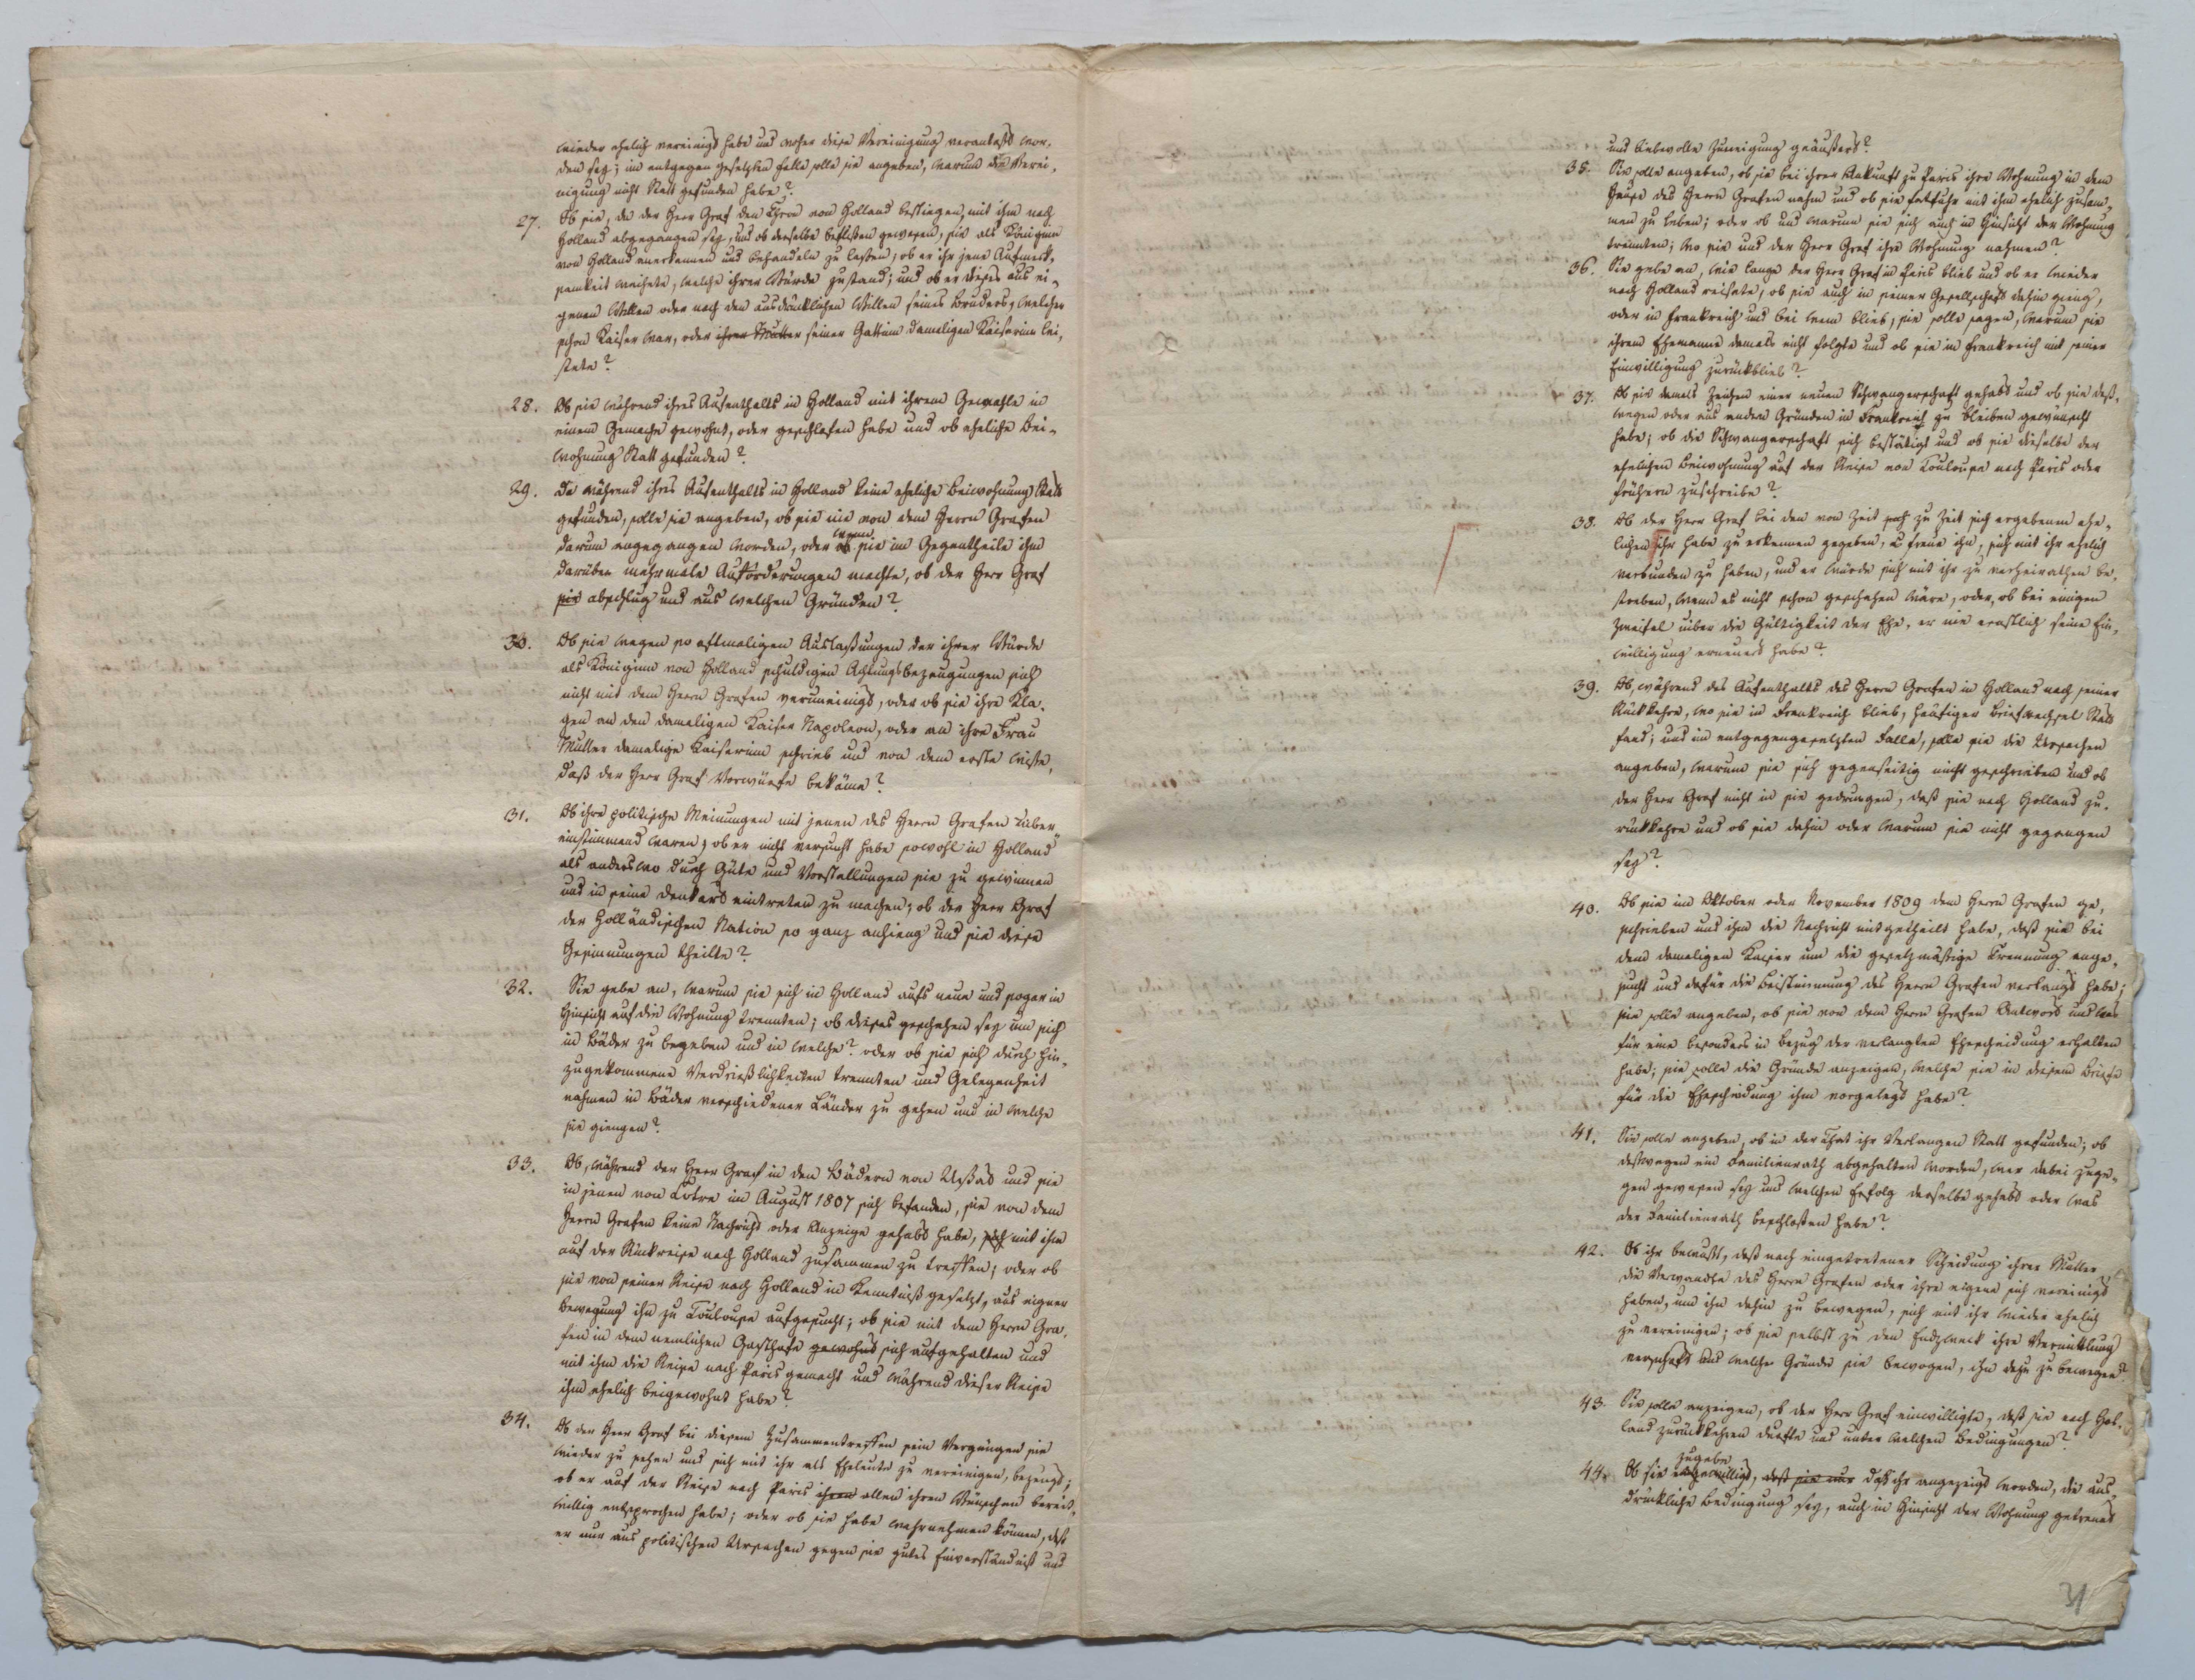 wieder ehelich vereinigt habe und woher diese Vereinigung veranlaßt wor-
den sey; im entgegen gesetzten Falle solle sie angeben, warum die Verei-
nigung nicht Statt gefunden habe?
27. Ob sie, da der Herr Graf den Thron von Holland bestiegen, mit ihm nach
Holland abgegangen sey, und ob derselbe beflissen gewesen, sie als Königinn
von Holland anerkennen und behandeln zu lassen; ob er ihr jene Aufmerk-
samkeit weihete, welche ihrer Würde zustand; und ob er dieses aus ei-
genen Willen oder nach den ausdrücklichen Willen seines Bruders, welcher
schon Kaiser war, oder ihrer Mutter seiner Gattinn damaligen Kaiserinn lei-
stete?
28. Ob sie während ihres Aufenthalts in Holland mit ihrem Gemahle in
einem Gemache gewohnt, oder geschlafen habe und ob eheliche Bei-
wohnung Statt gefunden?
29. Da während ihres Aufenthalts in Holland keine eheliche Beiwohnung Statt
gefunden, solle sie angeben, ob sie nie von dem Herrn Grafen
wenn
darum angegangen worden, oder ob sie im Gegentheile ihm
darüber mehrmale Aufforderungen machte, ob der Herr Graf
sie abschlug und aus welchen Gründen?
30. Ob sie wegen so oftmaligen Auslaßungen der ihrer Würde
als Königinn von Holland schuldigen Achtungsbezeugungen sich
nicht mit dem Herrn Grafen veruneinigt, oder ob sie ihre Kla-
gen an den damaligen Kaiser Napoleon, oder an ihre Frau
Mutter damalige Kaiserinn schrieb und von dem erste wiste,
daß der Herr Graf Vorwürfe bekäme?
31. Ob ihre politische Meinungen mit jenen des Herrn Grafen über-
einstimmend waren; ob er nicht versucht habe sowohl in Holland
als anderswo durch Güte und Vorstellungen sie zu gewinnen
und in seine Denkart eintreten zu machen; ob der Herr Graf
der Holländischen Nation so ganz anhieng und sie diese
Gesinnungen theilte?
32. Sie gebe an, warum sie sich in Holland aufs neue und sogar in
Hinsicht auf die Wohnung trennten; ob dieses geschehen sey um sich
in Bäder zu begeben und in welche? oder ob sie sich durch hin-
zugekommene Verdrießlichkeiten trennten und Gelegenheit
nahmen in Bäder verschiedener Länder zu gehen und in welche
sie giengen?
33. Ob, während der Herr Graf in den Bädern von Ussad und sie
in jenen von Cotre im August 1807 sich befanden, sie von dem
Herrn Grafen keine Nachricht oder Anzeige gehabt habe, sich mit ihm
auf der Rückreise nach Holland zusammen zu treffen; oder ob
sie von seiner Reise nach Holland in Kenntniß gesetzt, aus eigner
Bewegung ihn zu Toulouse aufgesucht; ob sie mit dem Herrn Gra-
fen in dem nemlichen Gasthofe gewohnt sich aufgehalten und
mit ihm die Reise nach Paris gemacht und während dieser Reise
ihm ehelich beigewohnt habe?
34. Ob der Herr Graf bei diesem Zusammentreffen sein Vergnügen sie
wieder zu sehen und sich mit ihr als Eheleute zu vereinigen, bezeugt;
ob er auf der Reise nach Paris ihren allen ihren Wünschen bereit-
willig entsprochen habe; oder ob sie habe wahrnehmen können, daß
er nur aus politischen Ursachen gegen sie gutes Einverständniß und
und liebevolle Zuneigung geäußert?
35. Sie solle angeben, ob sie bei ihrer Ankunft zu Paris ihre Wohnung in dem
Hause des Herrn Grafen nahm und ob sie fortfuhr mit ihm ehelich zusam-
men zu leben; oder ob und warum sie sich auch in Hinsicht der Wohnung
trennten; wo sie und der Herr Graf ihre Wohnung nahmen?
36. Sie gebe an, wie lange der Herr Graf in Paris blieb und ob er wieder
nach Holland reisete, ob sie auch in seiner Gesellschaft dahin gieng,
oder in Frankreich und bei wem blieb, sie solle sagen, warum sie
ihrem Ehemanne damals nicht folgte und ob sie in Frankreich mit seiner
Einwilligung zurückblieb?
37. Ob sie damals Zeichen einer neuen Schwangerschaft gehabt und ob sie deß-
wegen oder aus andern Gründen in Frankreich zu bleiben gewünscht
habe; ob die Schwangerschaft sich bestätigt und ob sie dieselbe der
ehelichen Beiwohnung auf der Reise von Toulouse nach Paris oder
frühern zuschreibe?
38. Ob der Herr Graf bei den von Zeit sich zu Zeit sich ergebenem ehe-
lichen ihr habe zu erkennen gegeben, es freue ihn, sich mit ihr ehelich
verbunden zu haben, und er würde sich mit ihr zu verheirathen be-
streben, wenn es nicht schon geschehen wäre, oder, ob bei einigen
Zweifel über die Gültigkeit der Ehe, er nie ernstlich seine Ein-
willigung erneuert habe?
39. Ob, während des Aufenthalts des Herrn Grafen in Holland nach seiner
Rückkehre, wo sie in Frankreich blieb, häufiger Briefwechsel Statt
fand; und im entgegengesetzten Falle, solle sie die Ursachen
angeben, warum sie sich gegenseitig nicht geschrieben und ob
der Herr Graf nicht in sie gedrungen, daß sie nach Holland zu-
rückkehre und ob sie dahin oder warum sie nicht gegangen
sey?
40. Ob sie im Oktober oder November 1809 dem Herrn Grafen ge-
schrieben und ihm die Nachricht mitgetheilt habe, daß sie bei
dem damaligen Kaiser um die gesetzmäßige Trennung ange-
sucht und dafür die Beistimmung des Herrn Grafen verlangt habe;
sie solle angeben, ob sie von dem Herrn Grafen Antwort und was
für eine besonders in Bezug der verlangten Ehescheidung erhalten
habe; sie solle die Gründe anzeigen, welche sie in diesem Briefe
für die Ehescheidung ihm vorgelegt habe?
41. Sie solle angeben, ob in der That ihr Verlangen Statt gefunden; ob
deßwegen ein Familienrath abgehalten worden, wer dabei zuge-
gen gewesen sey und welchen Erfolg derselbe gehabt oder was
der Familienrath beschlossen habe?
42. Ob ihr bewußt, daß nach eingetretener Scheidung ihrer Mutter
die Verwandte des Herrn Grafen oder ihre eigene sich vereinigt
haben, um ihn dahin zu bewegen, sich mit ihr wieder ehelich
zu vereinigen; ob sie selbst zu dem Endzweck ihre Vermittlung
versucht und welche Gründe sie bewogen, ihn dazu zu bewegen?
43. Sie solle anzeigen, ob der Herr Graf einwilligte, daß sie nach Hol-
land zurückkehren durfte und unter welchen Bedingungen?
zugebe
44. Ob sie eingewilligt, daß sie nur daß ihr angezeigt worden, die aus-
drückliche Bedingung sey, auch in Hinsicht der Wohnung getrennt
31